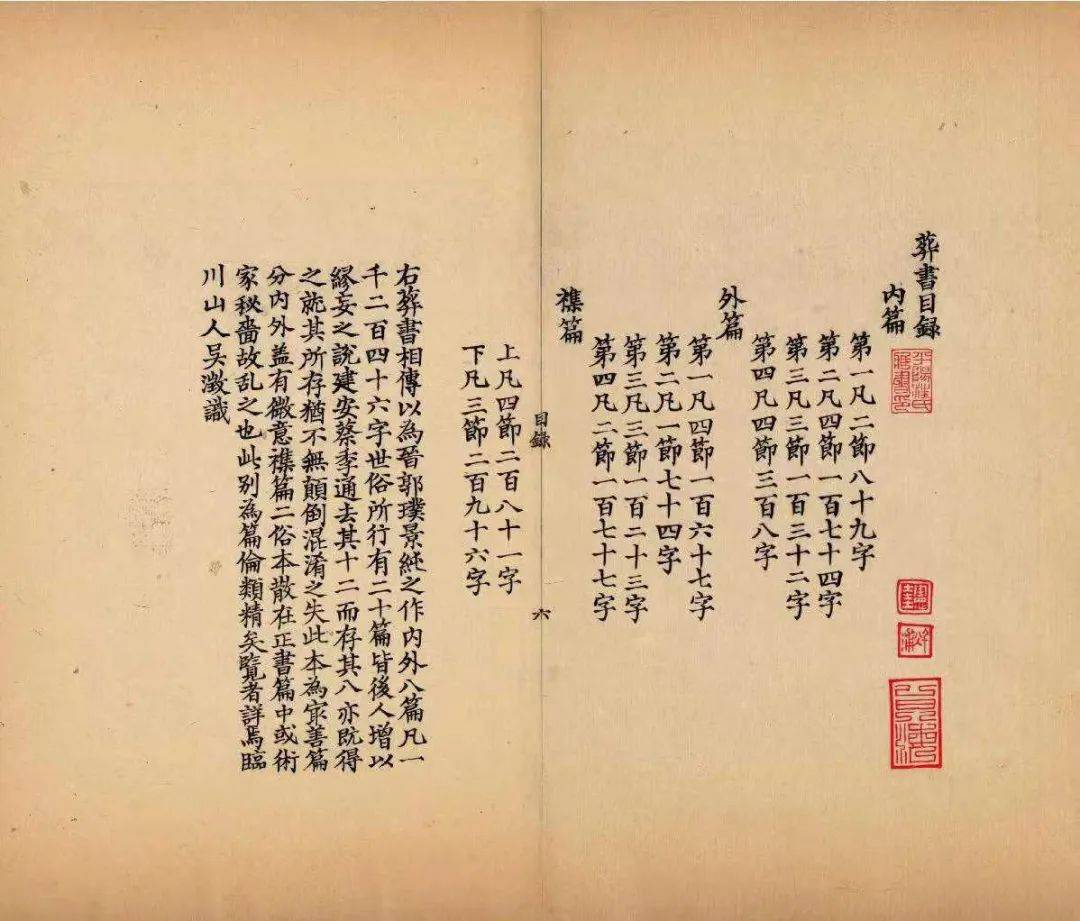 葬書目録
内篇
第一凡二節八十九字
第二凡四節一百七十四字
第三凡三節一百三十二字
第四凡四節三百八字
外篇
第一凡四節一百六十七字
第二凡一節七十四字
第三凡三節一百二十三字
第四凡二節一百七十七字
襍篇
目録
六
上凡四節二百八十一字
下凡三節二百九十六字
右葬書相傳以為晉郭璞景純之作内外八篇凡一
千二百四十六字世俗所行有二十篇皆後人增以
繆妄之說建安蔡季通去其十二而存其八亦既得
之就其所存猶不無顛倒混淆之失此本為㝡善篇
分内外盖有微意襍篇二俗本散在正書篇中或術
家秘嗇故乱之也此别為篇倫類精矣覽者詳焉臨
川山人吴澂識